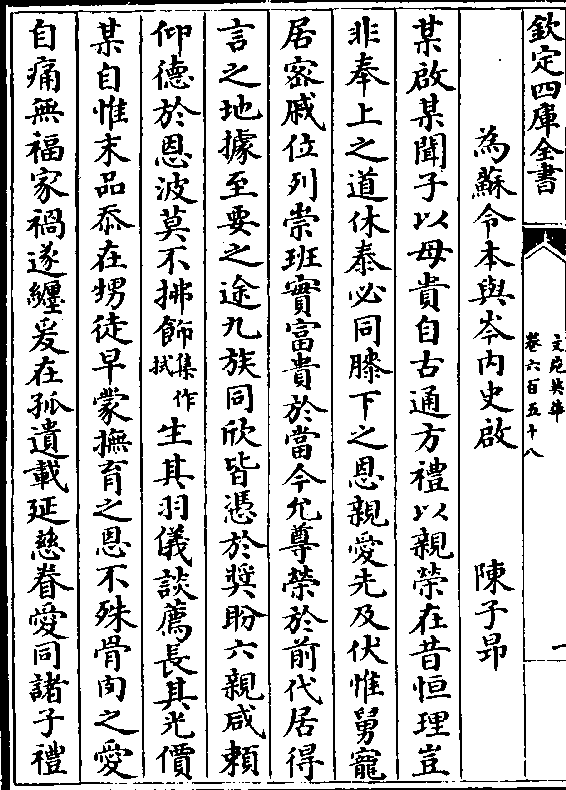 欽定四庫全書
文苑英華
卷六百五十八
一
為蘇令本與岑內史啟
陳子昻
某啟某聞子以母貴自古通方禮以親榮在昔恒理豈
非奉上之道休泰必同膝下之恩親愛先及伏惟舅寵
居密戚位列崇班實富貴於當今允尊榮於前代居得
言之地據至要之途九族同欣皆憑於奬盼六親咸頼
仰德於恩波莫不拂飾集作拭生其羽儀談薦長其光價
某自惟末品忝在甥徒早蒙撫育之恩不殊骨肉之愛
自痛無福家禍遂纒爰在孤遺載延慈眷愛同諸子禮